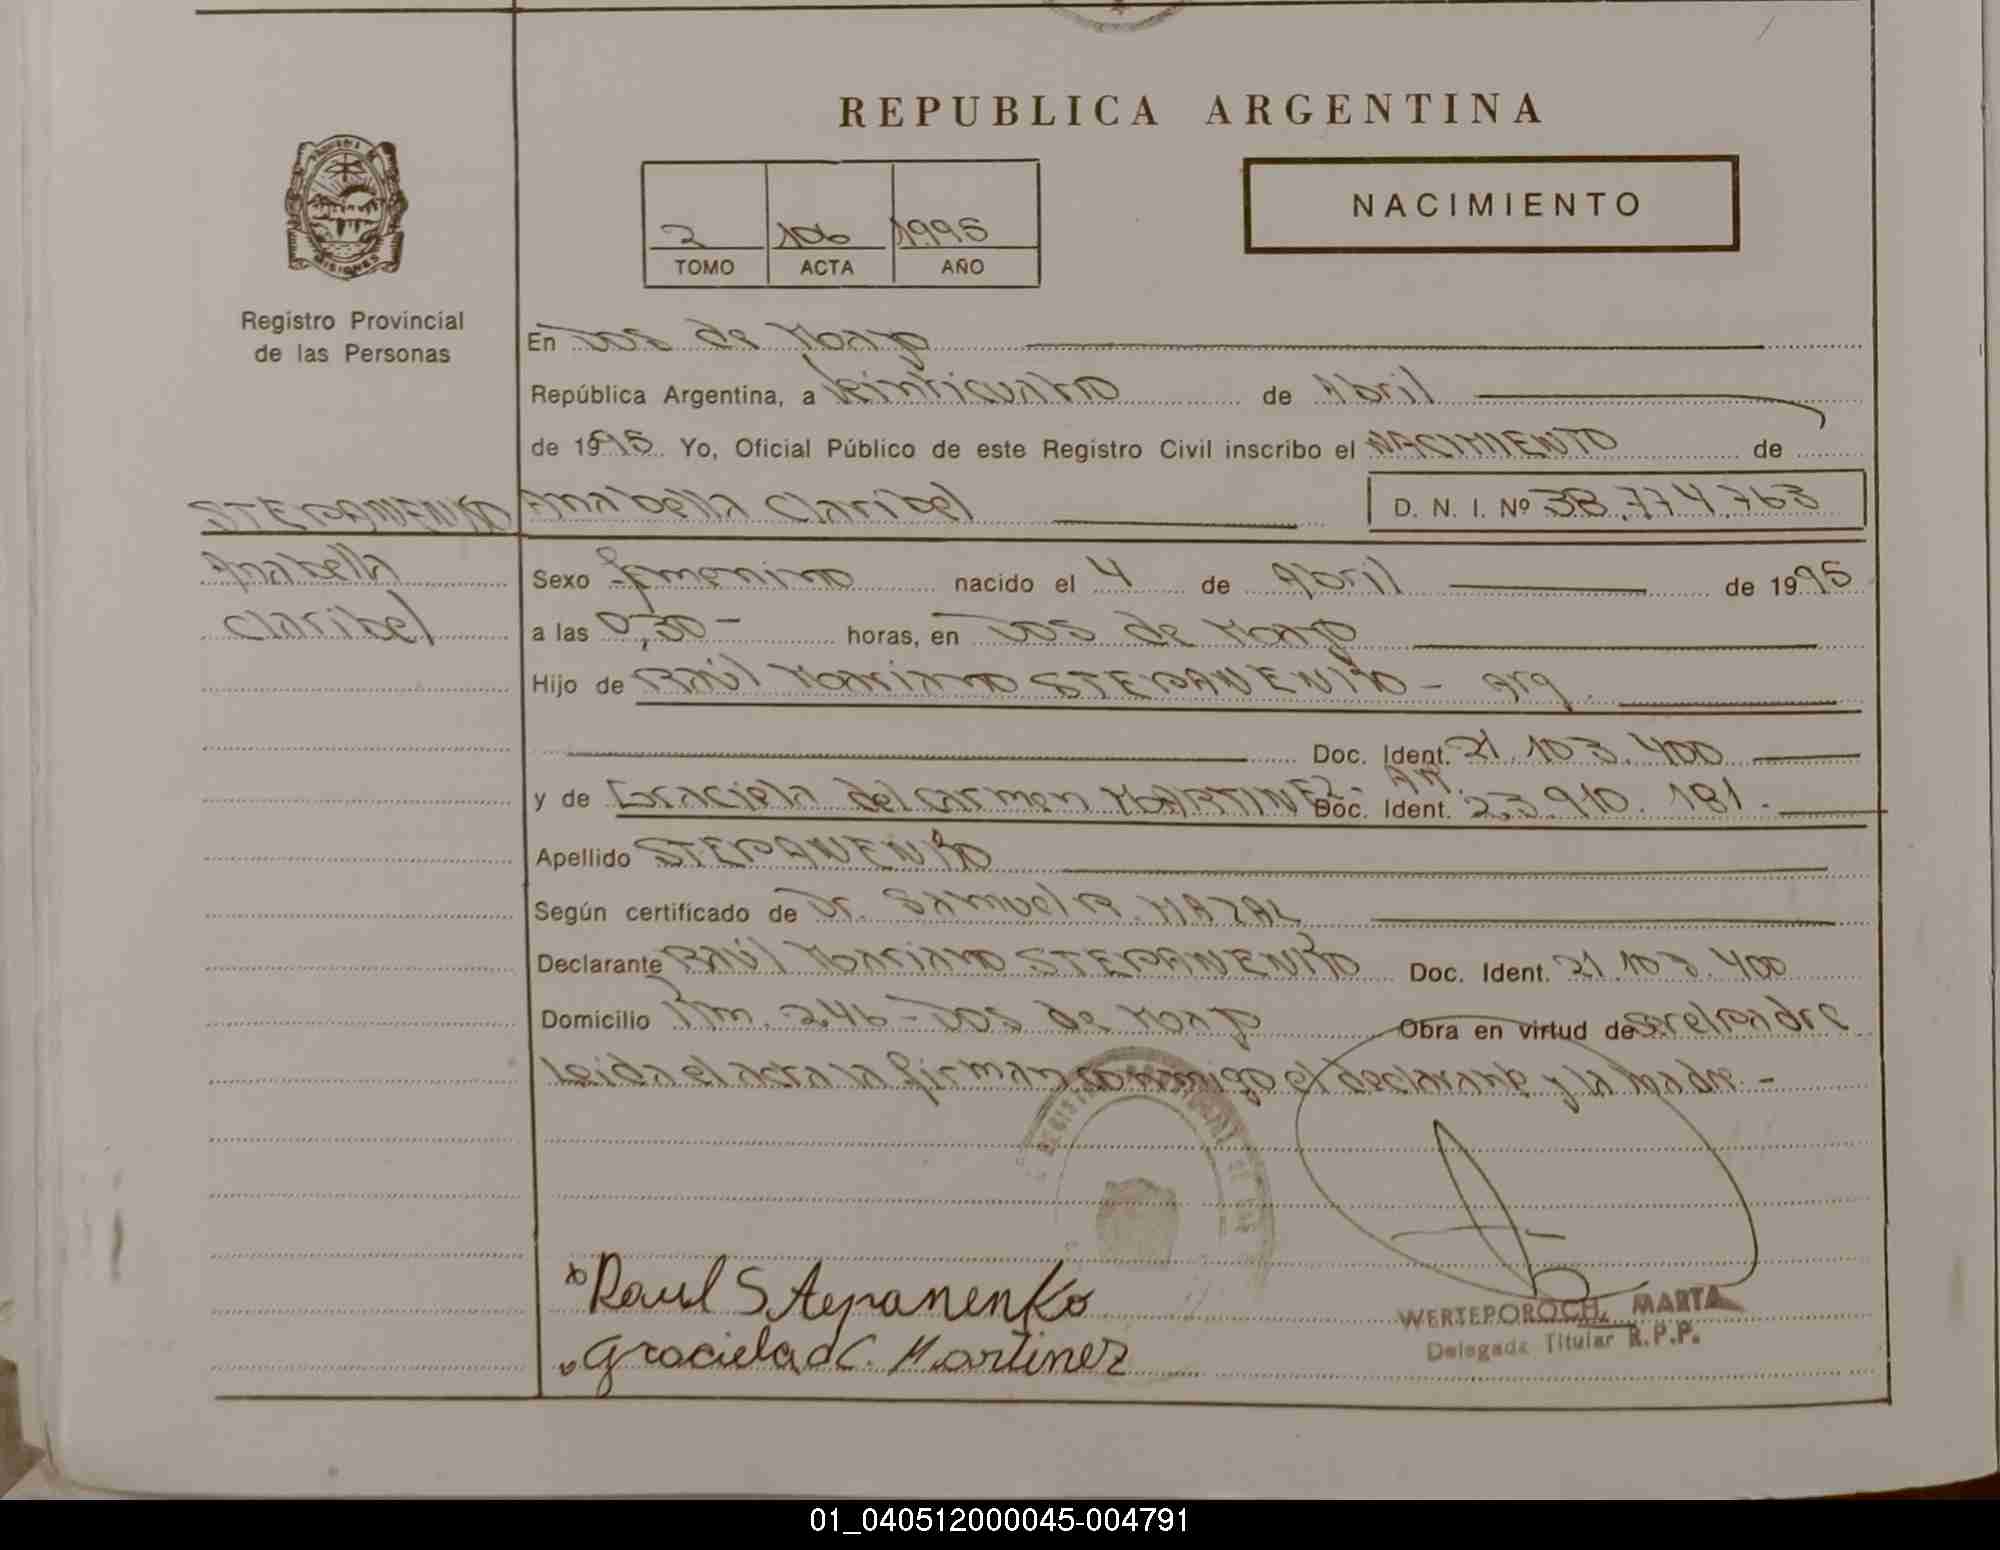 REPUBLICA ARGENTINA
NACIMIENTO
2 106 1995
TOMO ACTA AÑO
MISIONES
Registro Provincial
de las Personas
En Dos de Mayo
República Argentina, a Veinticuatro de Abril
de 1995. Yo, Oficial Público de este Registro Civil inscribo el NACIMIENTO de
STEPANENKO Anabella Claribel D. N. I. Nº 38.774.763
Anabella
Claribel
Sexo femenino nacido el 4 de Abril de 1995
a las 0,30 - horas, en Dos de Mayo
Hijo de Raúl Mariano STEPANENKO - Arg.
Doc. Ident. 21.103.400
y de Graciela del Carmen MARTINEZ - Ar.
Doc. Ident. 23.910.181.-
Apellido STEPANENKO
Según certificado de Dr. Samuel R. MAZAL
Declarante Raúl Mariano STEPANENKO Doc. Ident. 21.103.400
Domicilio Km. 246 - Dos de Mayo Obra en virtud de ser el padre
Leida el acta la firman conmigo el declarante y la madre -
Raul Stepanenko
Graciela d C. Martinez
WERTEPOROCH, MARTA
Delegada Titular R.P.P.
01_040512000045-004791